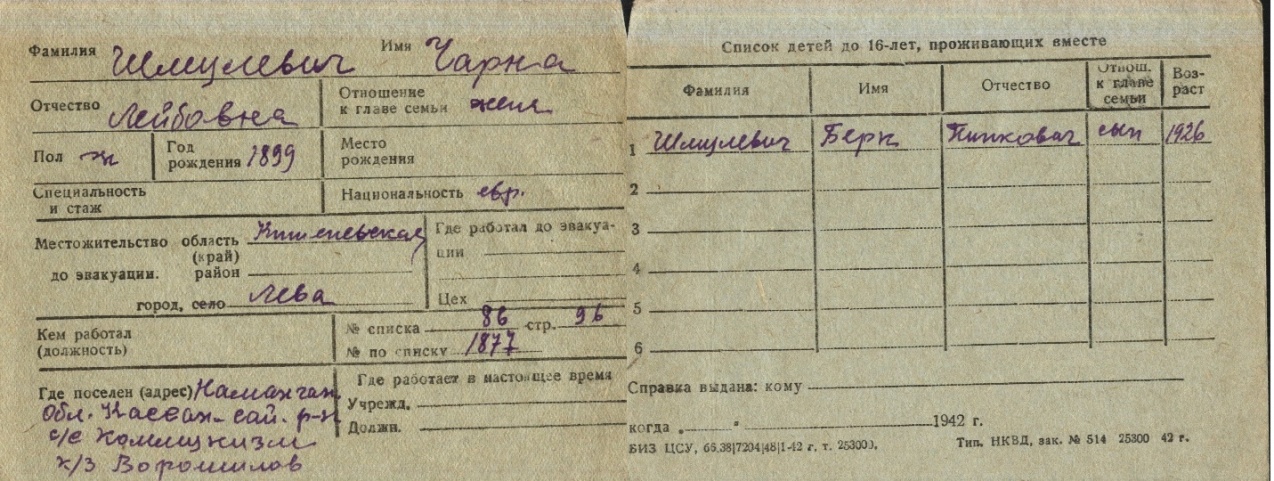 Фамилия Шмулевич Имя Чарна
Отчество Лейбовна Отношение к главе семьи жена
Пол ж Год рождения 1899 Место рождения
Специальность и стаж Национальность евр.
Местожительство до эвакуации. область (край) Кишеневская Где работал до эвакуации
район
город, село Лева Цех
Кем работал (должность) № списка 86 стр. 96
№ по списку 1877
Где поселен (адрес) Наманган. Где работает в настоящее время
Обл. Кассан-сай. р-н Учрежд.
с/с Коммунизм Должн.
к/з Ворошилов
Список детей до 16-лет, проживающих вместе
Фамилия Имя Отчество Отнош. к главе семьи Возраст
1 Шмулевич Берк Пинкович сын 1926
2
3
4
5
6
Справка выдана: кому
когда „ " 1942 г.
БИЗ ЦСУ, 66,38|7204|48|1-42 г. т. 253000. Тип. НКВД, зак. № 514 25300 42 г.